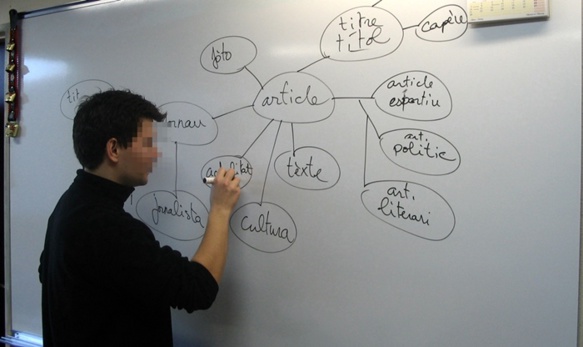 titre
títol
capèra
fòto
article
article
esportiu
art.
politic
tèxte
art.
literari
jornalista
cultura